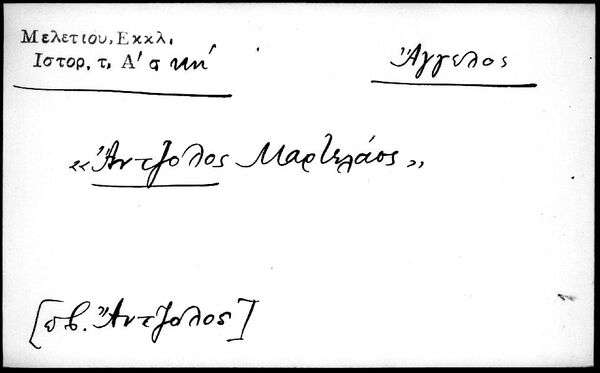 Μελετίου, Εκκλ.
Ιστορ, τ, Α' σ κή
Ἄγγελος
«Ἄντζολος Μαρτελάος»
[πβ. Ἄντζολος]